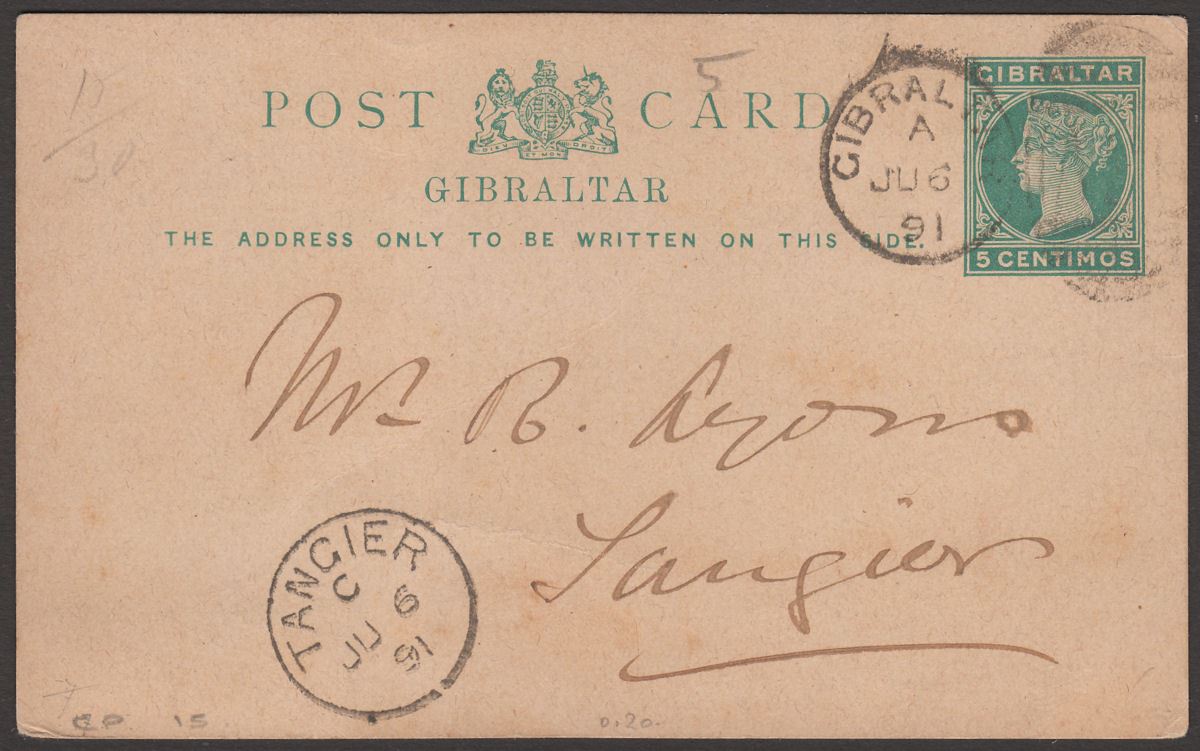 5
POST CARD
DIEU ET MON DROIT
GIBRALTAR
THE ADDRESS ONLY TO BE WRITTEN ON THIS SIDE.
GIBRAL
A
JU 6
91
GIBRALTAR
5 CENTIMOS
Mr. R. Lyons
Tangier
TANGIER
C
JU 6
91
15
0.20